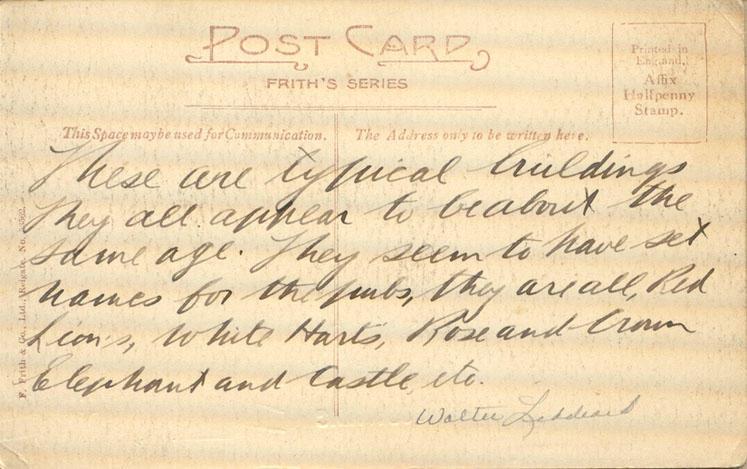 POST CARD
FRITH'S SERIES
Printed in
England.
Affix
Halfpenny
Stamp.
This Space may be used for Communication.
The Address only to be written here.
F. Frith & Co., Ltd., Reigate. No.
These are typical buildings
They all appear to be about the
same age. They seem to have set
names for the pubs, they are all, Red
Lions, White Harts, Rose and Crown
Elephant and Castle, etc.
Walter